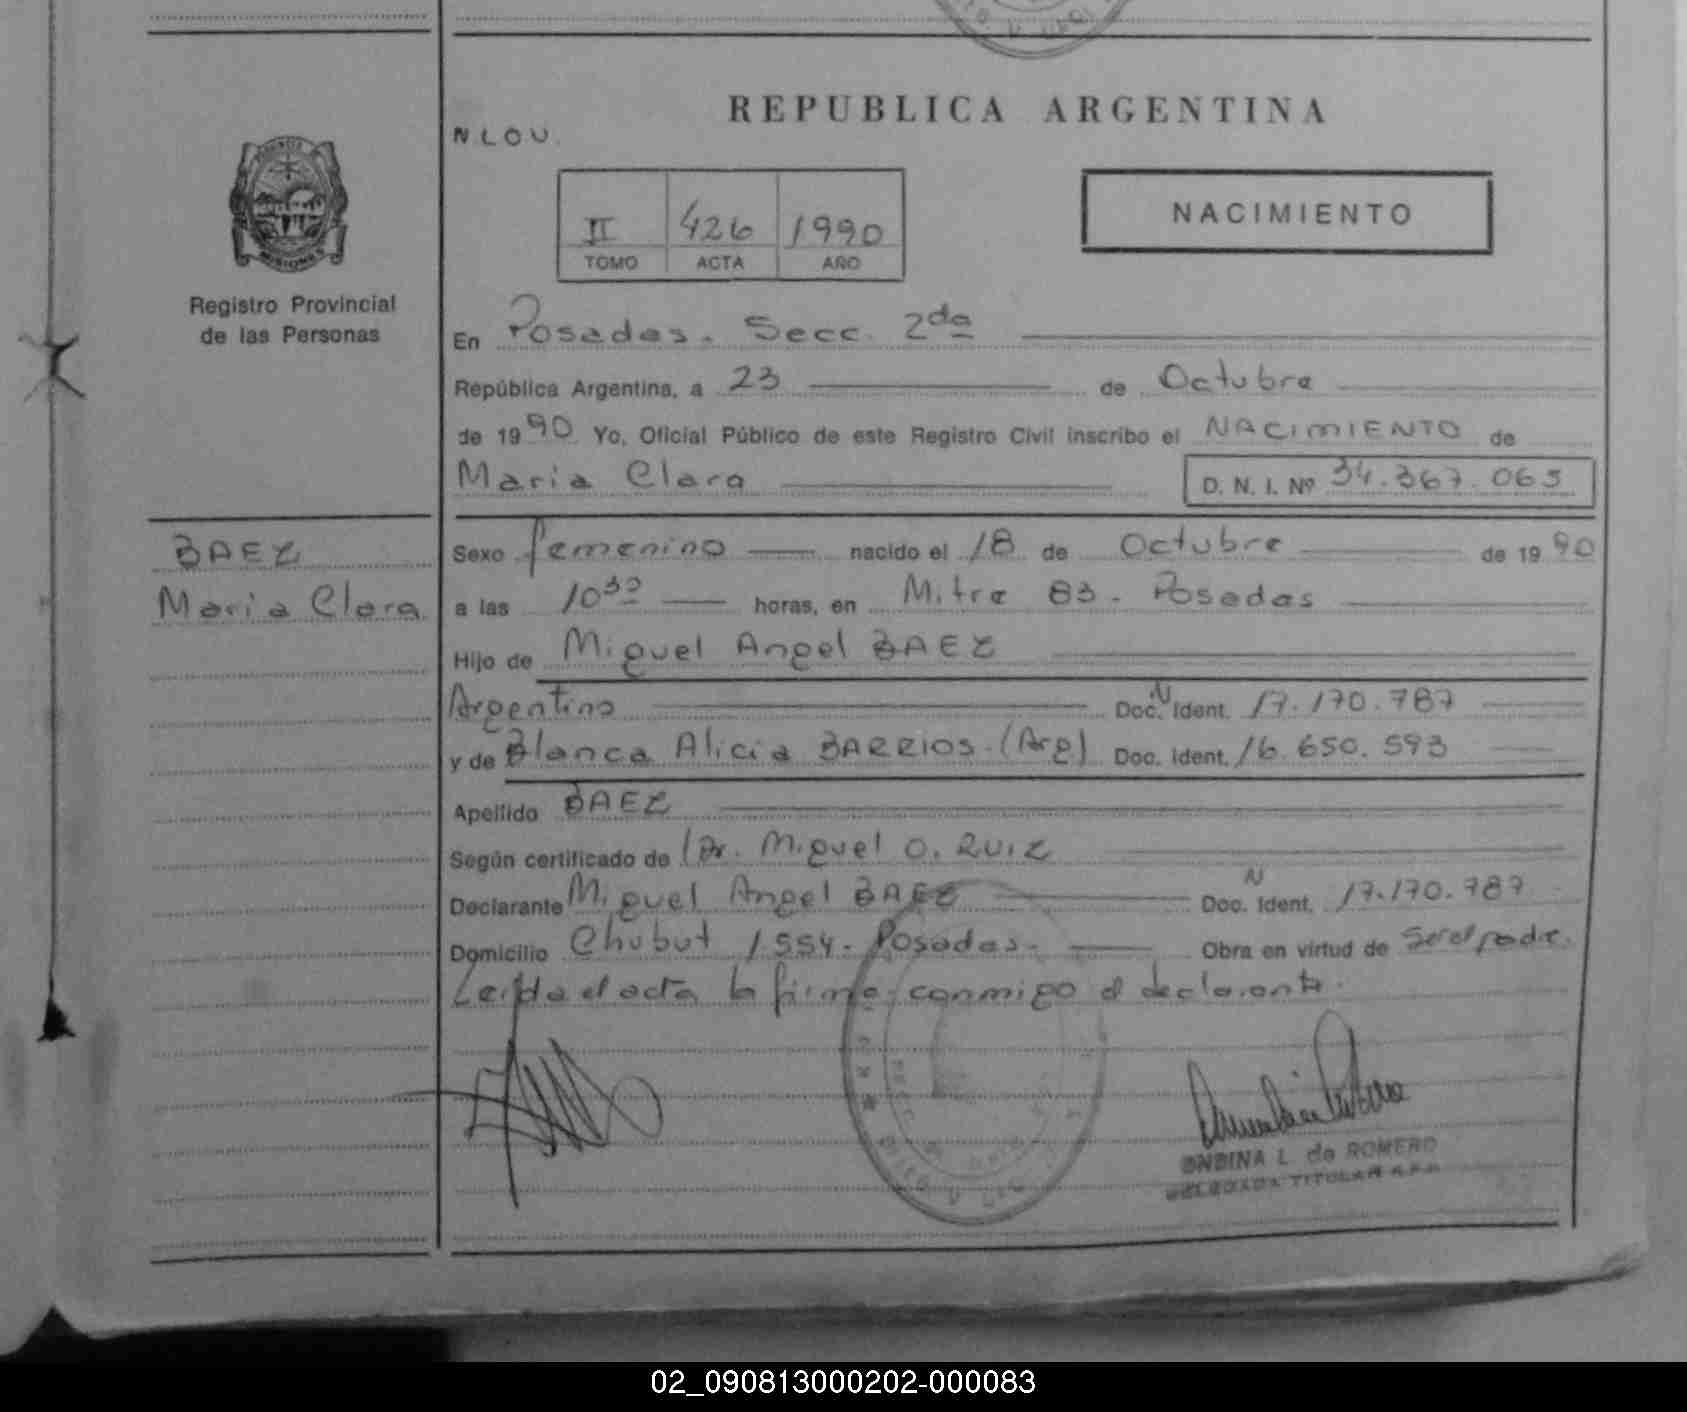 REPUBLICA ARGENTINA
N L O U.
II 426 1990
TOMO ACTA AÑO
NACIMIENTO
MISIONES
Registro Provincial
de las Personas
En Posadas. Secc. 2da
República Argentina, a 23 de Octubre
de 1990 Yo, Oficial Público de este Registro Civil inscribo el NACIMIENTO de
Maria Clara D. N. I. Nº 34.367.065
BAEZ
Maria Clara
Sexo femenino nacido el 18 de Octubre de 1990
a las 10 30 horas, en Mitre 83. Posadas
Hijo de Miguel Angel BAEZ
Argentino Doc. N Ident. 17.170.787
y de Blanca Alicia BARRIOS. (Arg) Doc. Ident. 16.650.593
Apellido BAEZ
Según certificado de Dr. Miguel O. RUIZ
Declarante Miguel Angel BAEZ Doc. N Ident. 17.170.787
Domicilio Chubut 1554. Posadas. Obra en virtud de Ser el padre.
Leída el acta la firma conmigo el declarante.
ONDINA L. de ROMERO
DELEGADA TITULAR R.P.P.
02_090813000202-000083